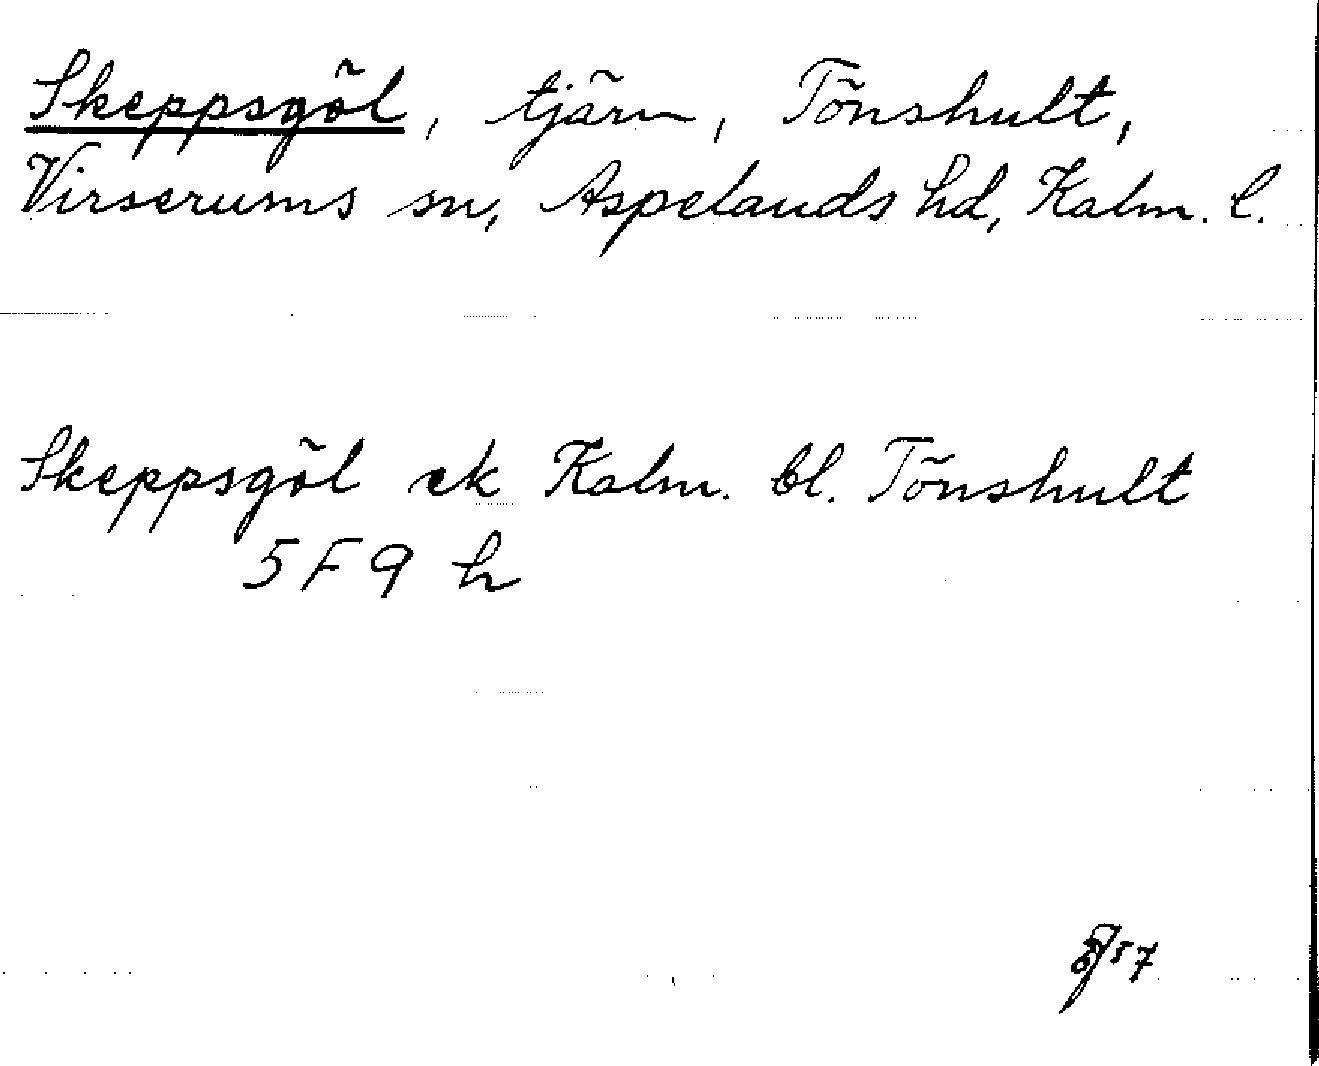 Skeppsgöl, tjärn, Tönshult,
Virserums sn, Aspelands hd, Kalm. l.
Skeppsgöl ek Kalm. bl. Tönshult
5 F 9 h
57